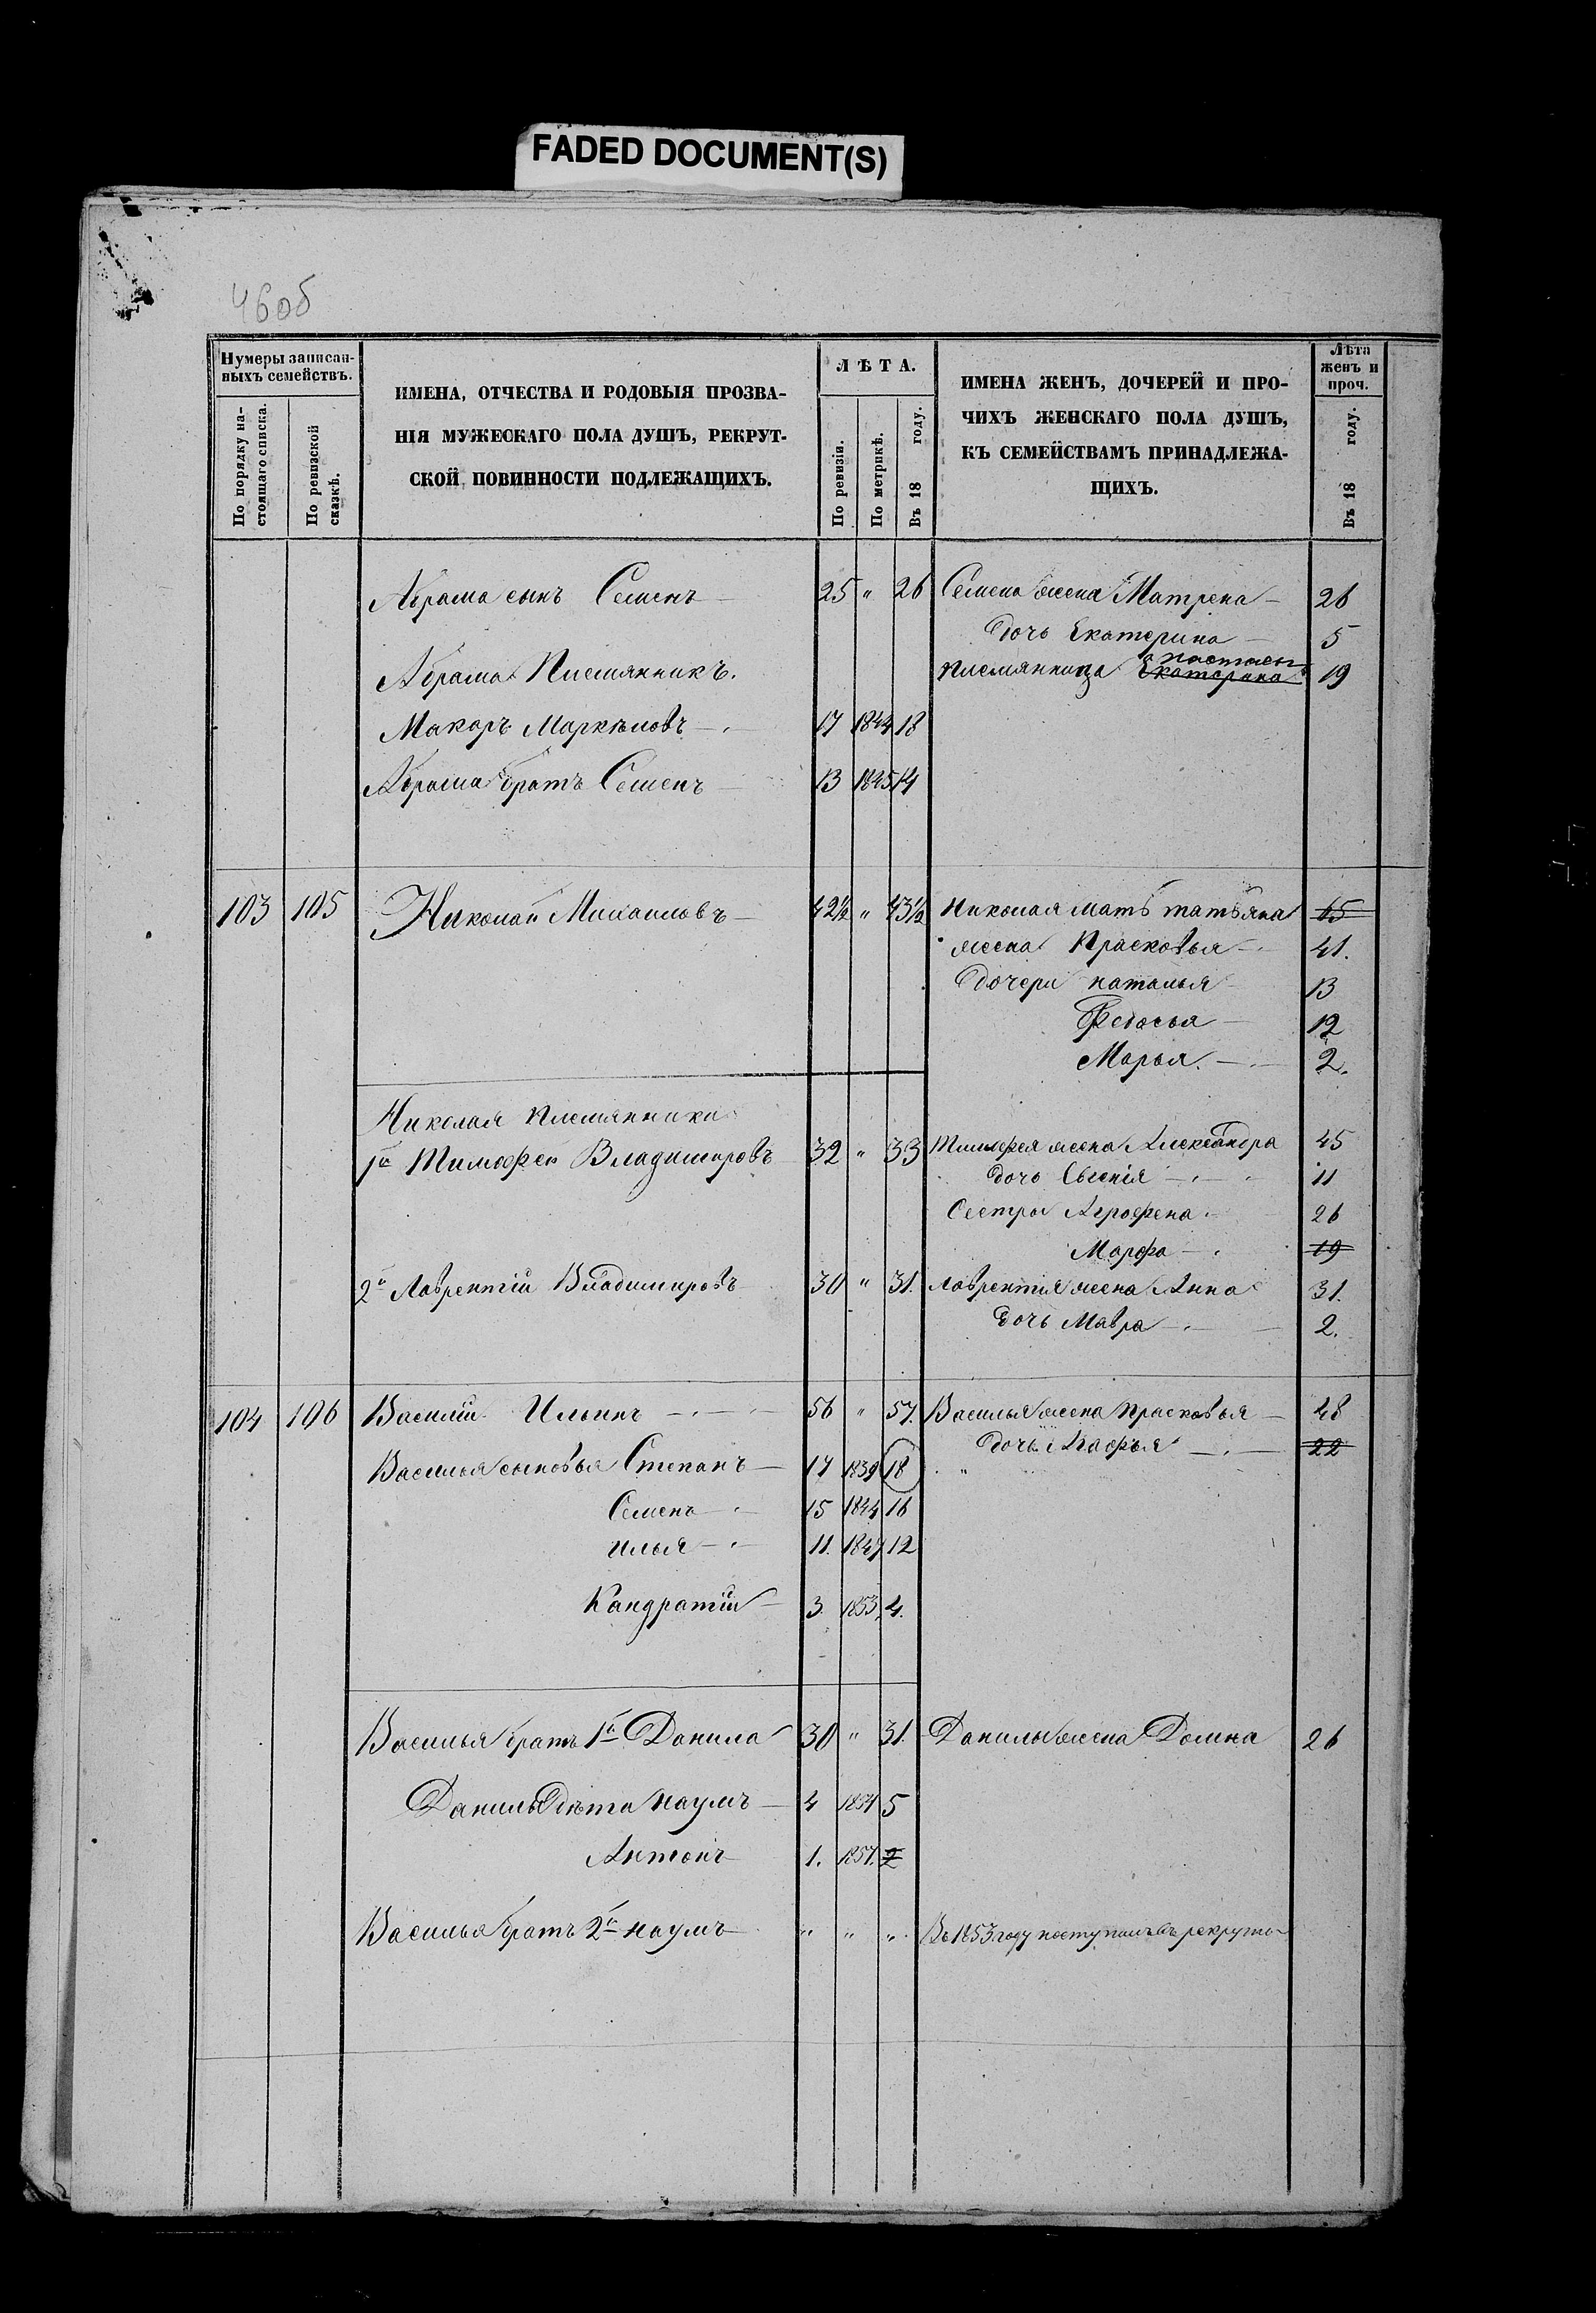 FADED DOCUMENT(S)
46об
Нумеры записан-
ныхъ семействъ.
По порядку на-
стоящаго списка.
По ревизской
сказкѣ.
ИМЕНА, ОТЧЕСТВА И РОДОВЫЯ ПРОЗВА-
НІЯ МУЖЕСКАГО ПОЛА ДУШЪ, РЕКРУТ-
СКОЙ ПОВИННОСТИ ПОДЛЕЖАЩИХЪ.
ЛѢТА.
По ревизіи.
По метрикѣ.
Въ 18 году.
ИМЕНА ЖЕНЪ, ДОЧЕРЕЙ И ПРО-
ЧИХЪ ЖЕНСКАГО ПОЛА ДУШЪ,
КЪ СЕМЕЙСТВАМЪ ПРИНАДЛЕЖА-
ЩИХЪ.
Лѣта
женъ и
проч.
Въ 18 году.
Абрама сынъ Семенъ 25 " 26 Семена жена Матрена 26
дочь Екатерина 5
Абрама Племянникъ. племянница Екатерина Настасья 19
Макаръ Маркѣловъ 17 1844 18
Абрама братъ Семенъ 13 1845 14
103 105 Николай Михаиловъ 42½ " 43½ Николая мать татьяна 65
жена Прасковья 41.
дочери наталья 13
Федосья 12
Марья. 2.
Николая племянники
1й Тимофей Владимировъ 32 " 33 Тимофея жена Александра 45
дочь Евгенія 11
Сестра Аграфена 26
Марфа 19
2й Лаврентій Владимировъ 30 " 31. Лаврентія жена Анна 31.
дочь Мавра 2.
104 106 Василій Ильинъ 56 " 57. Василья жена Прасковья 48
дочь Агафья 22
Василья сыновья Степанъ 17 1839 18 "
Семенъ 15 1844 16
Илья 11. 1847 12
Кандратій 3. 1853 4.
Василья братъ 1й Данила 30 " 31. Данилы жена Домна 26
Данилы дѣти Наумъ 4 1854 5
Антонъ 1. 1857. 2
Василья братъ 2й Наумъ " " " Въ 1853 году поступилъ въ рекруты